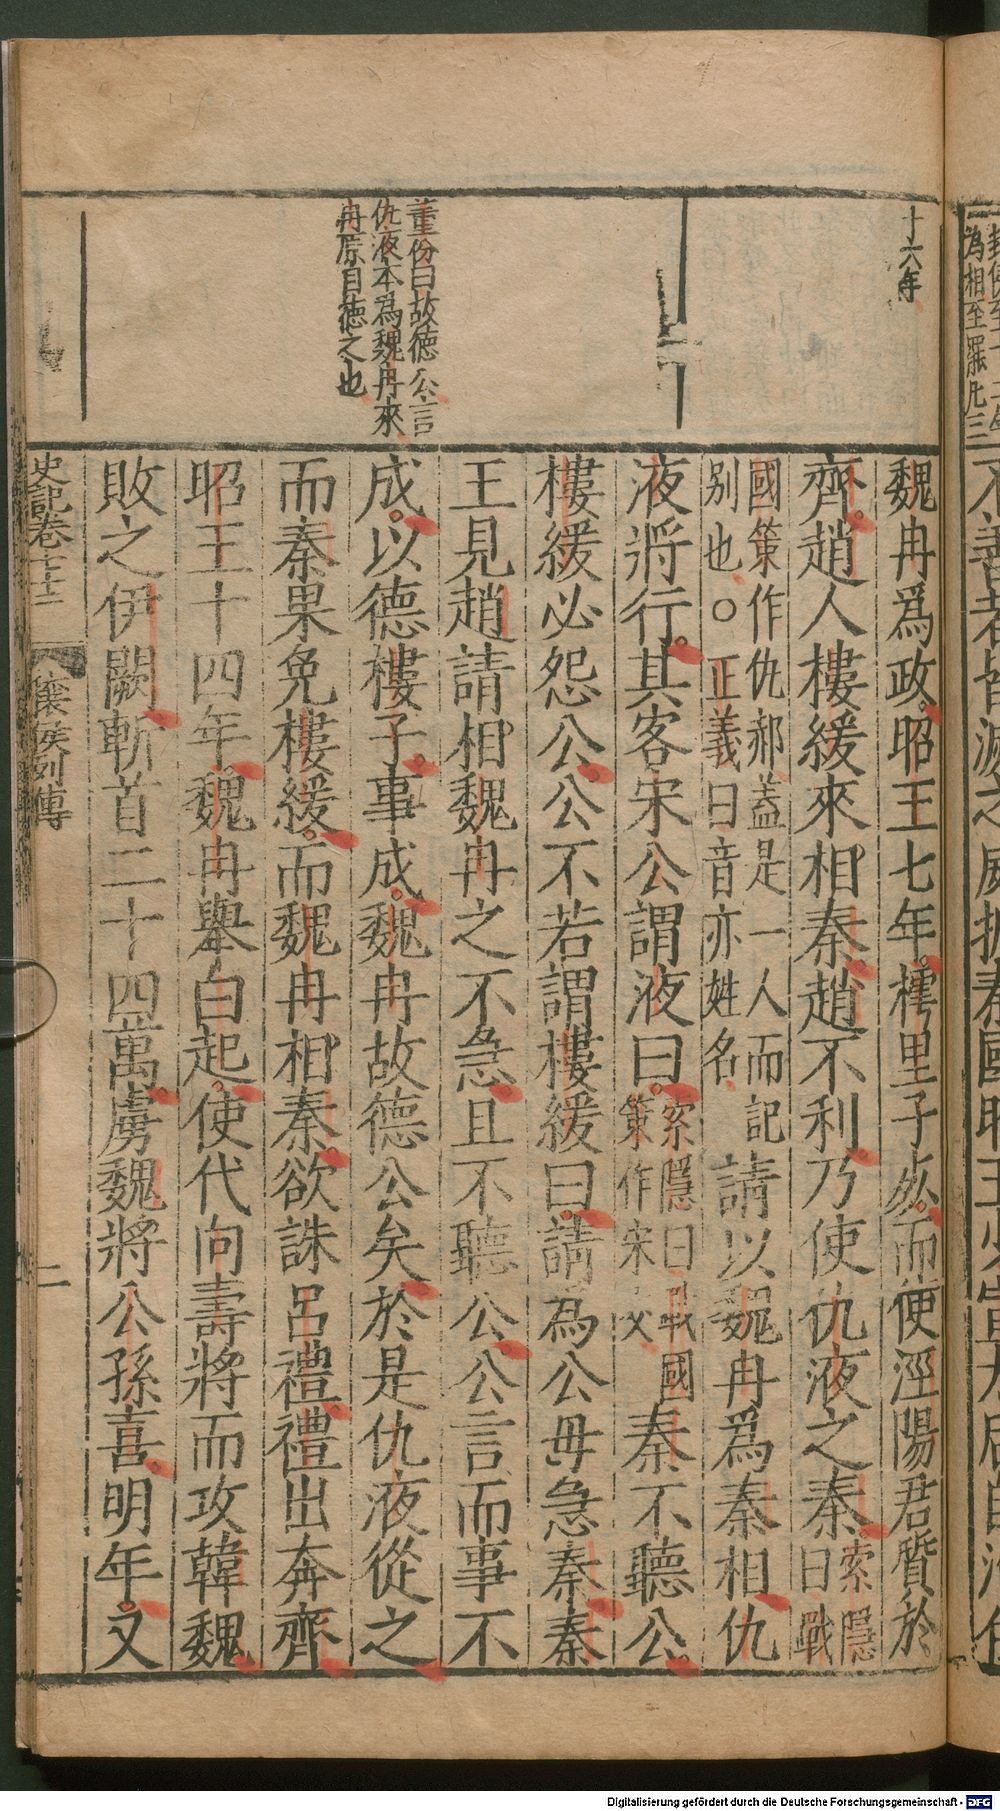 十六年
董份曰故德公言
仇液本爲魏冉來
冉原自德之也
魏冉爲政昭王七年樗里子死而使涇陽君質於
齊趙人樓緩來相秦趙不利乃使仇液之秦索隱
曰戰
國策作仇郝蓋是一人而記
别也○正義曰音亦姓名
請以魏冉爲秦相仇
液將行其客宋公謂液曰
索隱曰戰國
策作宋
秦不聽公
樓緩必怨公公不若謂樓緩曰請為公毋急秦秦
王見趙請相魏冉之不急且不聽公公言而事不
成以德樓子事成魏冉故德公矣於是仇液從之
而秦果免樓緩而魏冉相秦欲誅呂禮禮出奔齊
昭王十四年魏冉舉白起使代向壽將而攻韓魏
敗之伊闕斬首二十四萬虜魏將公孫喜明年又
史記卷七十二
穰侯列傳
二
Digitalisierung gefördert durch die Deutsche Forschungsgemeinschaft - DFG